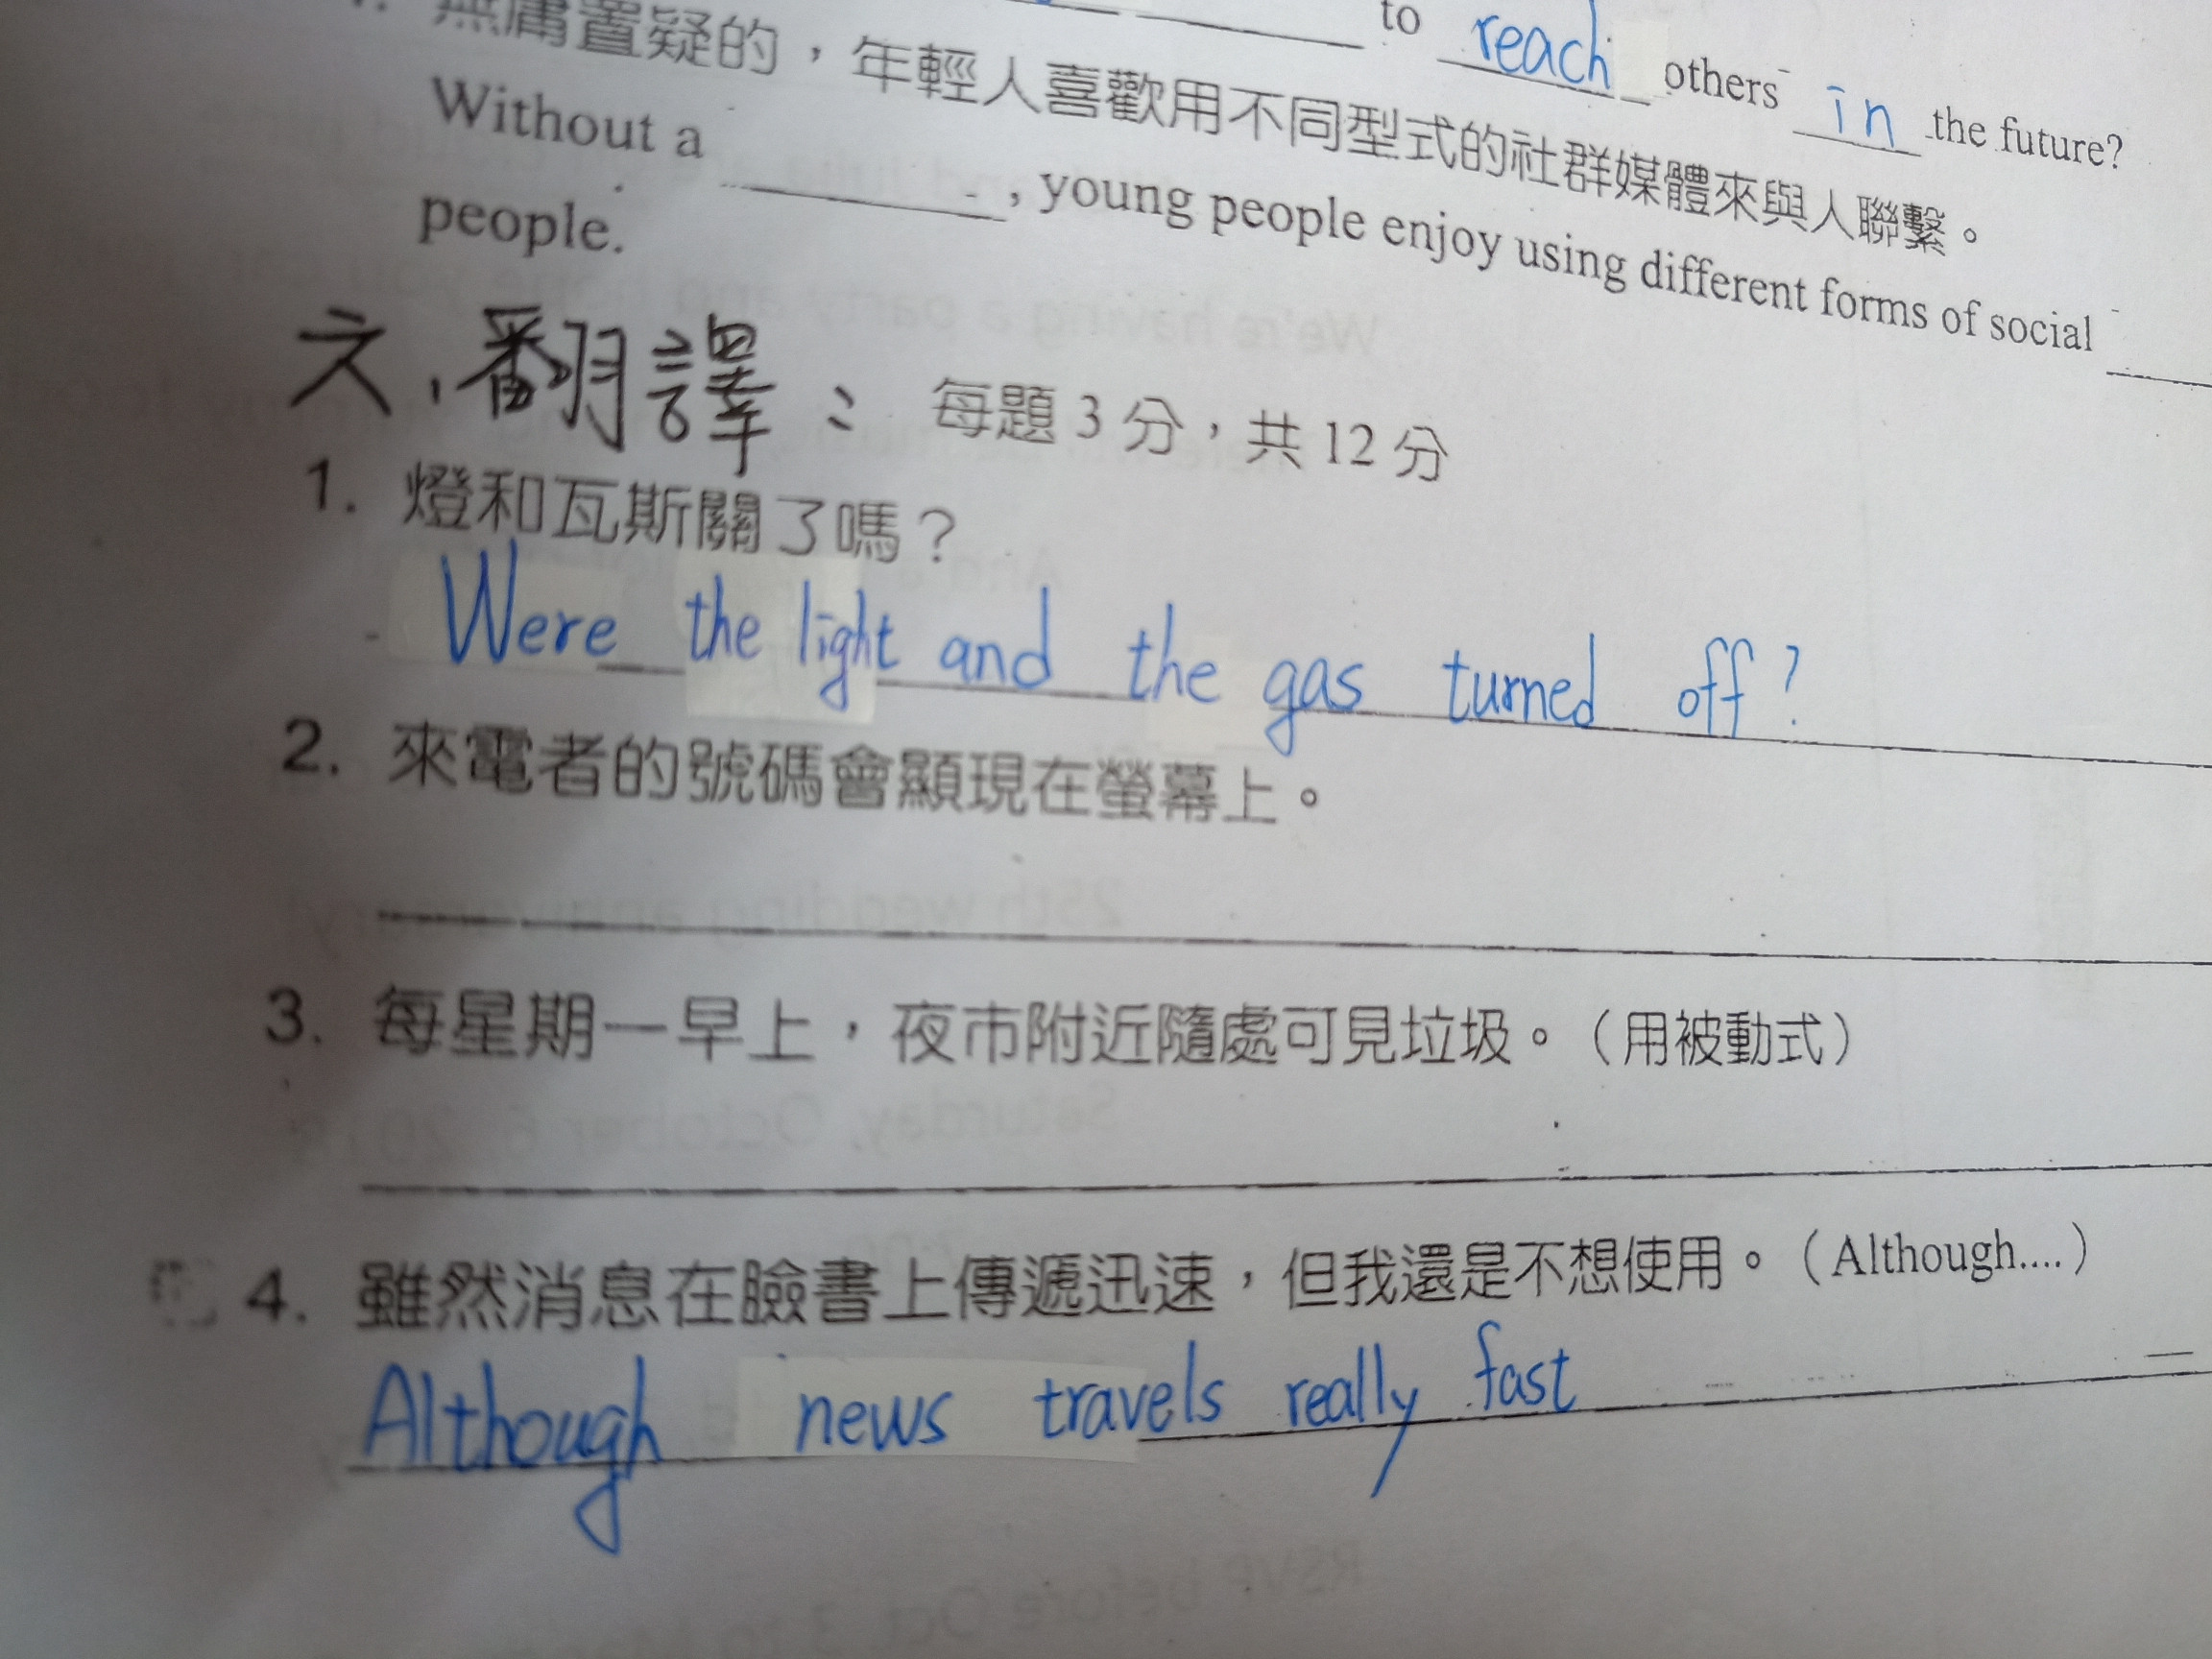 to reach others in the future?
無庸置疑的，年輕人喜歡用不同型式的社群媒體來與人聯繫。
Without a ________, young people enjoy using different forms of social ____
people.
文、翻譯： 每題 3 分，共 12 分
1. 燈和瓦斯關了嗎？
Were the light and the gas turned off?
2. 來電者的號碼會顯現在螢幕上。
3. 每星期一早上，夜市附近隨處可見垃圾。（用被動式）
4. 雖然消息在臉書上傳遞迅速，但我還是不想使用。（Although....）
Although news travels really fast